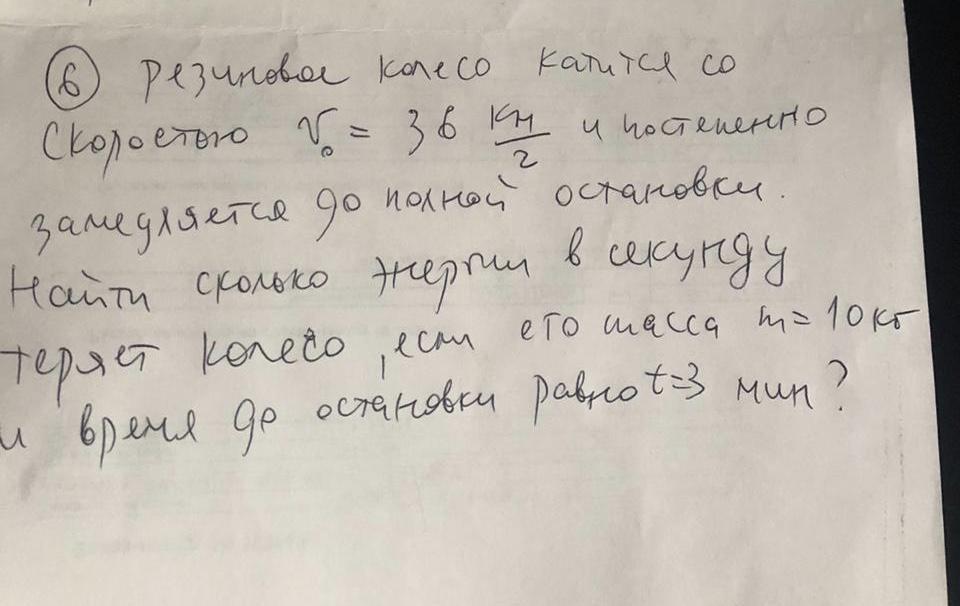 6 Резиновое колесо катится со
Скоростью V₀ = 36 км/г и постепенно
замедляется до полной остановки.
Найти сколько энергии в секунду
теряет колесо, если его масса m = 10 кг
и время до остановки равно t=3 мин?